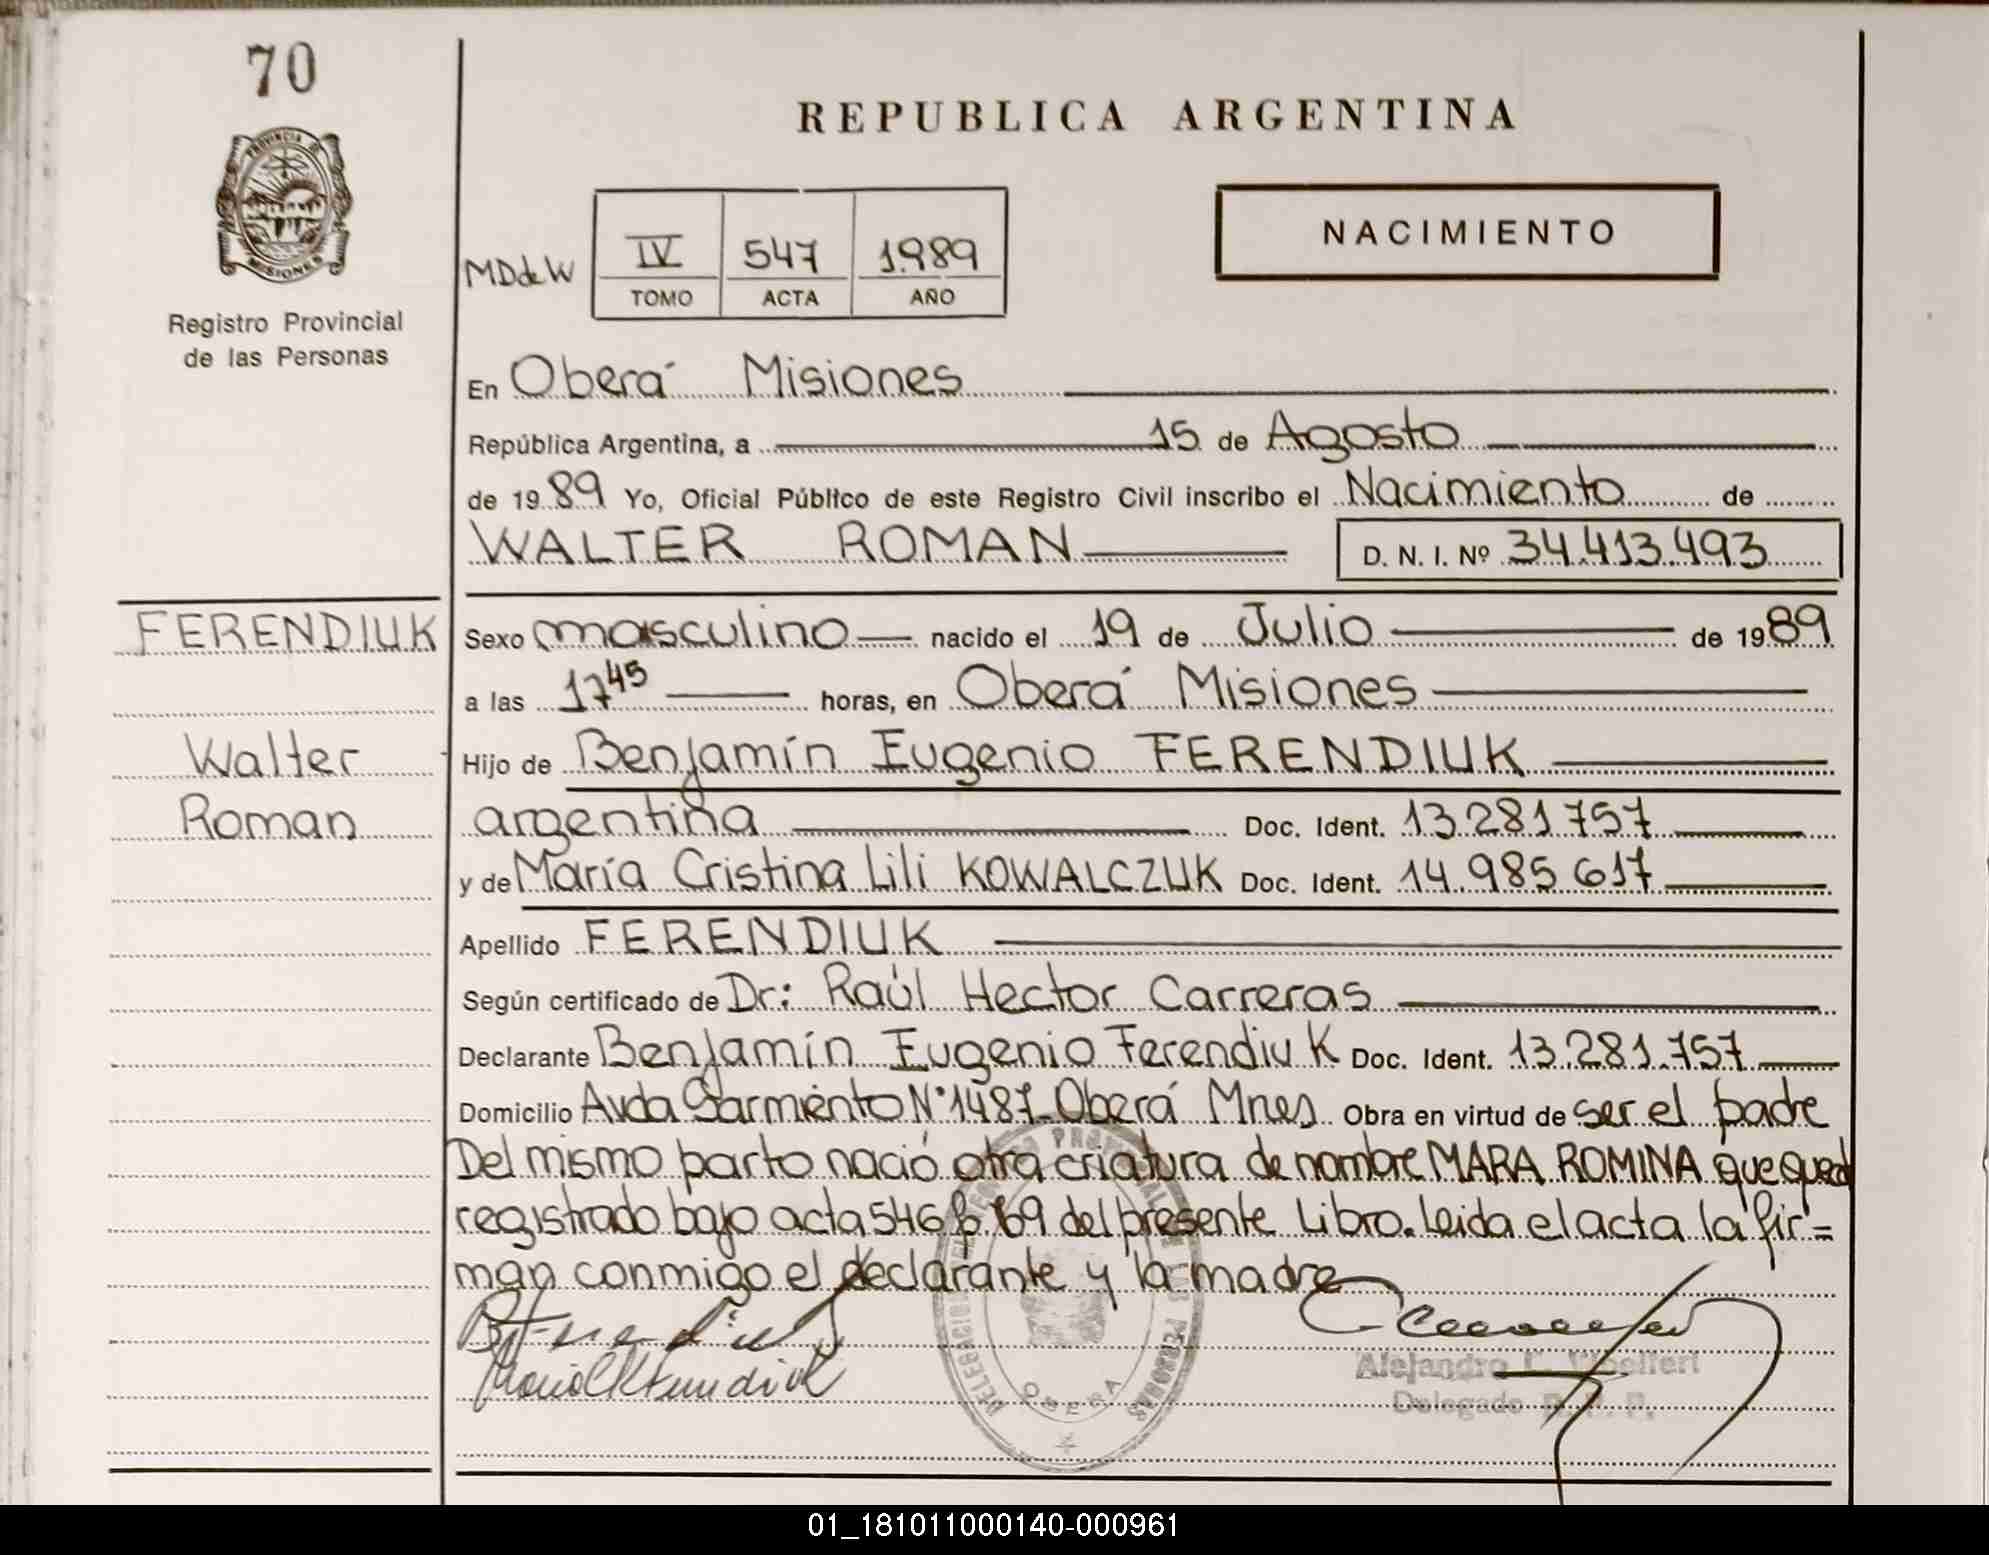 70
PROVINCIA DE
MISIONES
Registro Provincial
de las Personas
REPUBLICA ARGENTINA
NACIMIENTO
MDdeW
IV 547 1989
TOMO ACTA AÑO
En Oberá Misiones
República Argentina, a 15 de Agosto
de 1989 Yo, Oficial Público de este Registro Civil inscribo el Nacimiento de
WALTER ROMAN D. N. I. Nº 34.413.493
FERENDIUK
Walter
Roman
Sexo masculino nacido el 19 de Julio de 1989
a las 17 45 horas, en Oberá Misiones
Hijo de Benjamín Eugenio FERENDIUK
argentina Doc. Ident. 13.281.757
y de María Cristina Lili KOWALCZUK Doc. Ident. 14.985.617
Apellido FERENDIUK
Según certificado de Dr: Raúl Hector Carreras
Declarante Benjamín Eugenio Ferendiuk Doc. Ident. 13.281.757
Domicilio Avda Sarmiento Nº 1487 Oberá Mnes. Obra en virtud de ser el padre
Del mismo parto nació otra criatura de nombre MARA ROMINA que qued
registrado bajo acta 546 fº 69 del presente Libro. Leida el acta la fir=
man conmigo el declarante y la madre
Delegado R. P. P.
OBERA
01_181011000140-000961